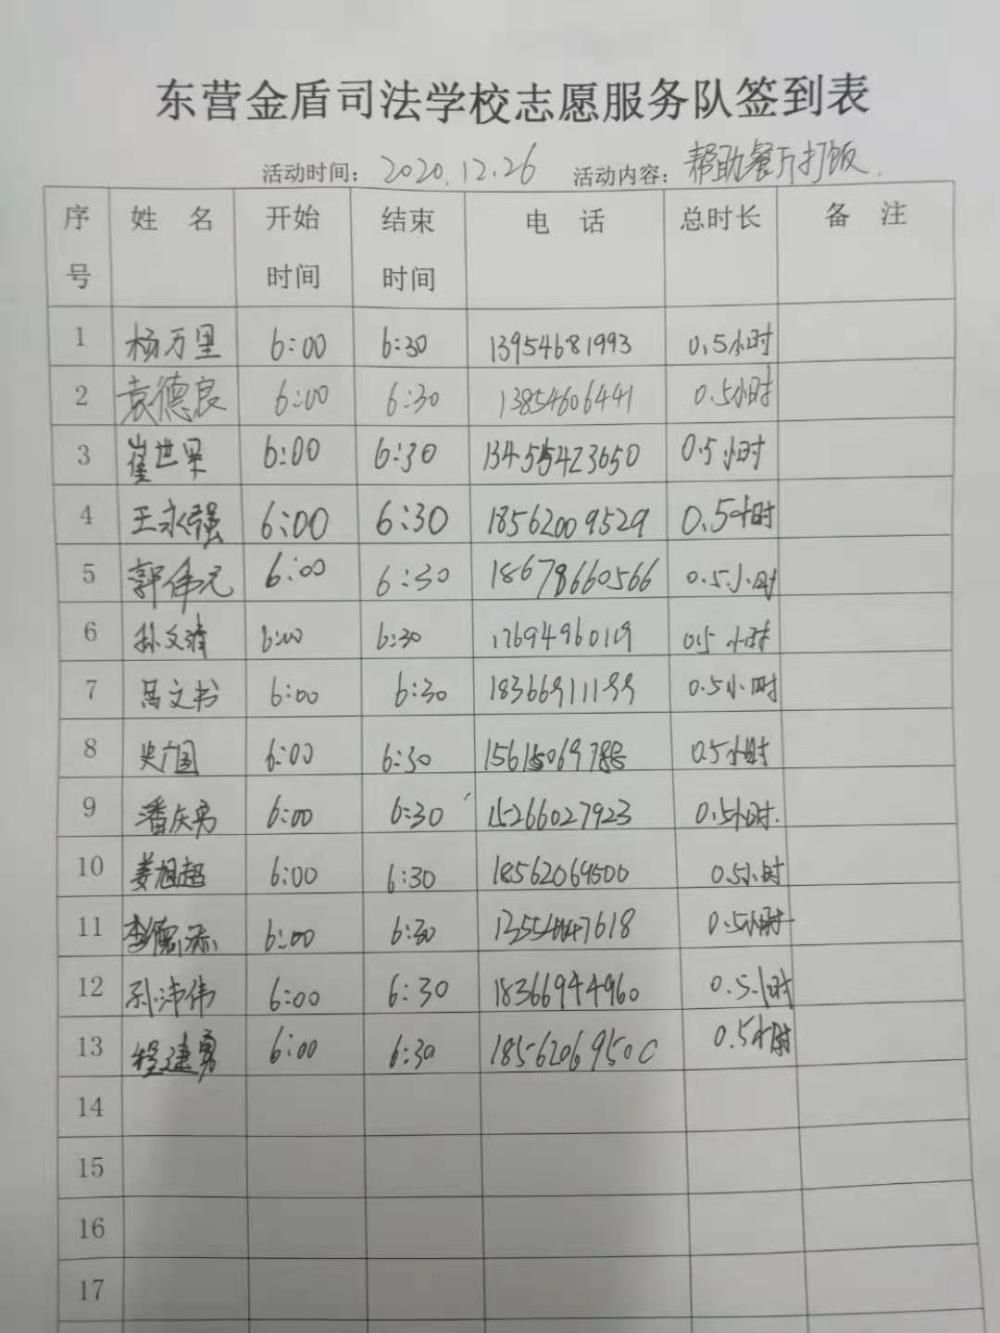 东营金盾司法学校志愿服务队签到表
活动时间: 2020.12.26 活动内容: 帮助餐厅打饭.
序号 姓名 开始时间 结束时间 电话 总时长 备注
1 杨万里 6:00 6:30 13954681993 0.5小时
2 袁德良 6:00 6:30 13854606441 0.5小时
3 崔世果 6:00 6:30 13455423650 0.5小时
4 王永强 6:00 6:30 18562009529 0.5小时
5 郭伟元 6:00 6:30 18678660566 0.5小时
6 孙文 6:00 6:30 17694960119 0.5小时
7 吕文书 6:00 6:30 18366911199 0.5小时
8 史广国 6:00 6:30 0.5小时
9 潘庆勇 6:00 6:30 15266027923 0.5小时.
10 姜旭超 6:00 6:30 18562069500 0.5小时
11 李德 6:00 6:30 0.5小时
12 孙沛伟 6:00 6:30 18366944960 0.5小时
13 程建勇 6:00 6:30 18562069500 0.5小时
14
15
16
17